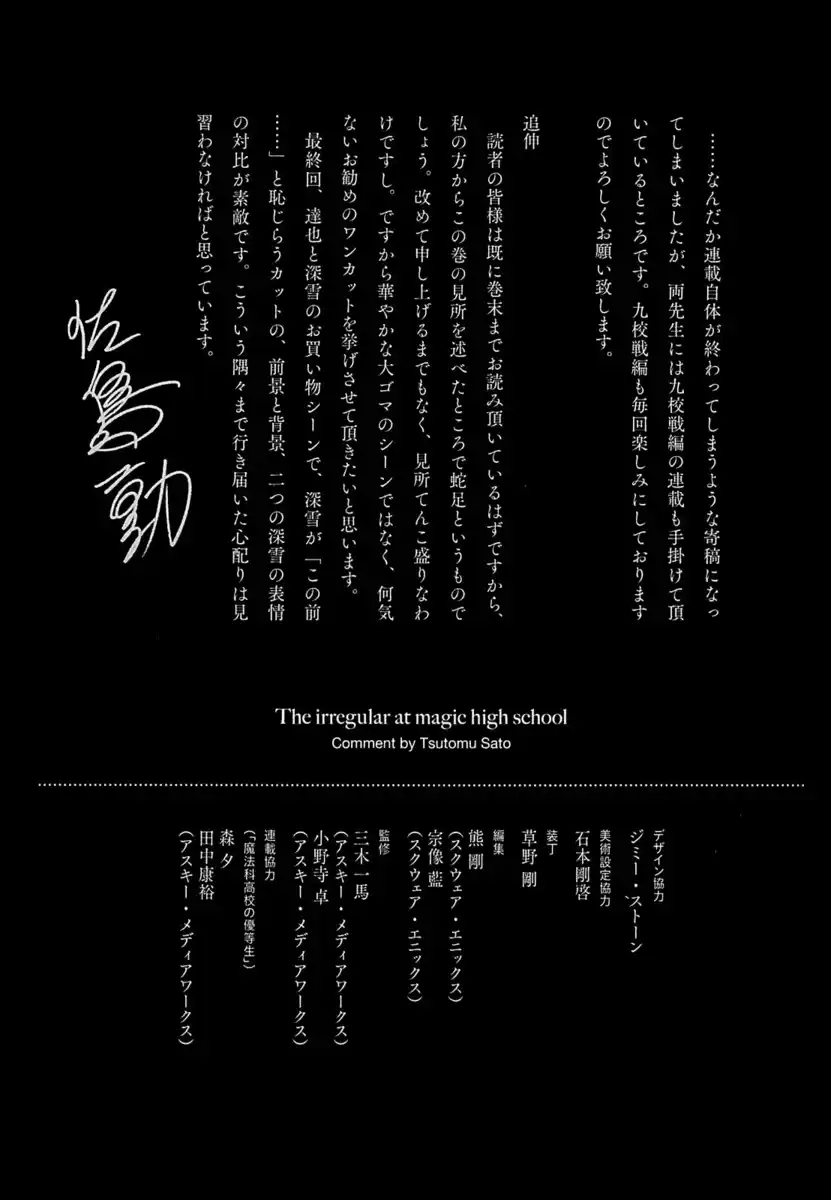 ……なんだか連載自体が終わってしまうような寄稿になっ
てしまいましたが、両先生には九校戦編の連載も手掛けて頂
いているところです。九校戦編も毎回楽しみにしております
のでよろしくお願い致します。
追伸
読者の皆様は既に巻末までお読み頂いているはずですから、
私の方からこの巻の見所を述べたところで蛇足というもので
しょう。改めて申し上げるまでもなく、見所てんこ盛りなわ
けですし。ですから華やかな大ゴマのシーンではなく、何気
ないお勧めのワンカットを挙げさせて頂きたいと思います。
最終回、達也と深雪のお買い物シーンで、深雪が「この前
……」と恥じらうカットの、前景と背景、二つの深雪の表情
の対比が素敵です。こういう隅々まで行き届いた心配りは見
習わなければと思っています。
佐島勤
The irregular at magic high school
Comment by Tsutomu Sato
デザイン協力
ジミー・ストーン
美術設定協力
石本剛啓
装丁
草野 剛
編集
熊 剛
(スクウェア・エニックス)
宗像 藍
(スクウェア・エニックス)
監修
三木一馬
(アスキー・メディアワークス)
小野寺 卓
(アスキー・メディアワークス)
連載協力
(「魔法科高校の優等生」)
森 夕
田中康裕
(アスキー・メディアワークス)